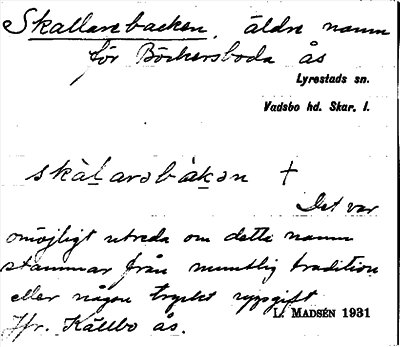 Skallarebacken, äldre namn
för Böckersboda ås
Lyrestads sn.
Vadsbo hd. Skar. l.
skàlarəbàkən †
Det var
omöjligt utreda om detta namn
stammar från muntlig tradition
eller någon tryckt uppgift
L. MADSÉN 1931
Jfr. Källbo ås.